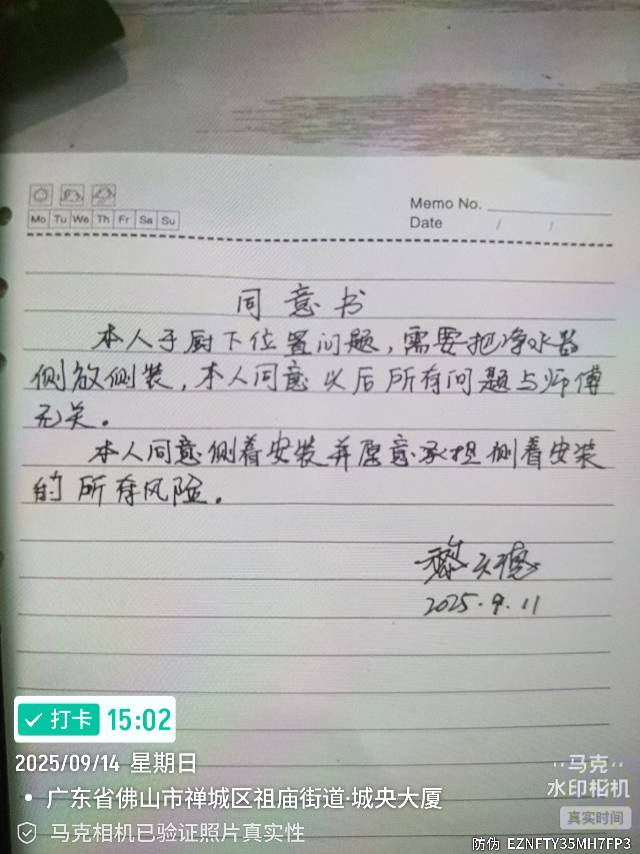 Mo Tu We Th Fr Sa Su
Memo No.
Date / /
同意书
本人于厨下位置问题，需要把净水器
侧放侧装，本人同意以后所有问题与师傅
无关。
本人同意侧着安装并愿意承担侧着安装
的所有风险。
2025.9.11
打卡 15:02
2025/09/14 星期日
广东省佛山市禅城区祖庙街道·城央大厦
马克相机已验证照片真实性
马克
水印相机
真实时间
防伪 EZNFTY35MH7FP3